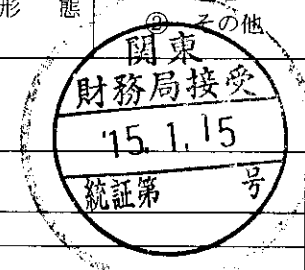 形態
② その他
関東
財務局接受
'15.1.15
統証第 号